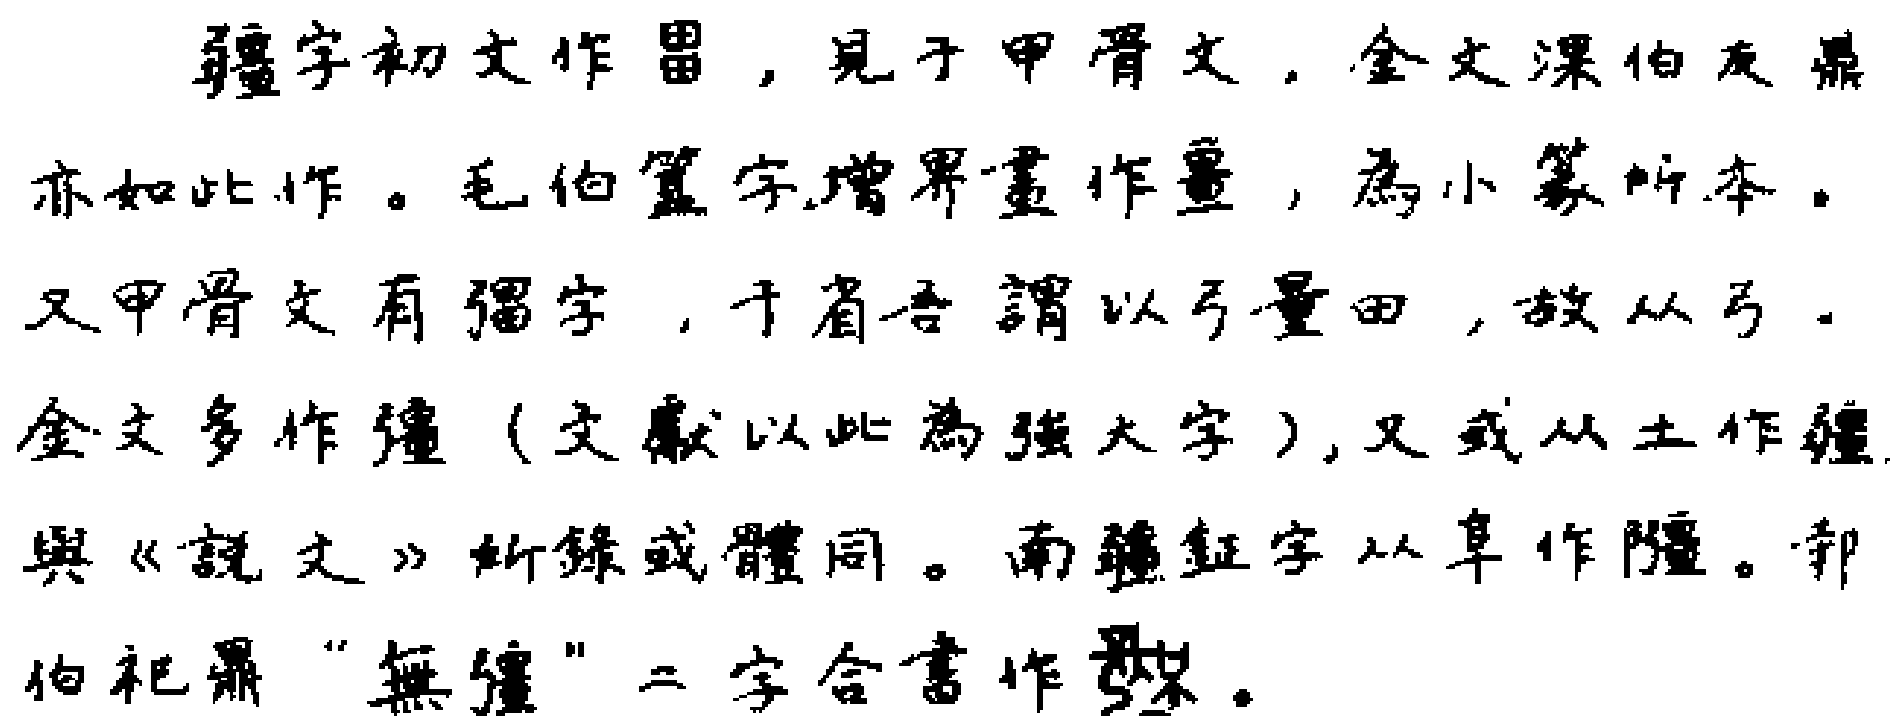 疆字初文作畕，見于甲骨文．金文深伯友鼎
亦如此作。毛伯簋字增界畫作畺，為小篆所本．
又甲骨文有弝字，于省吾謂以弓量田，故从弓．
金文多作彊（文獻以此為強大字），又或从土作疆．
與《説文》所錄或體同。南疆鉦字从阜作。邾
伯祀鼎“無彊”二字合書作．